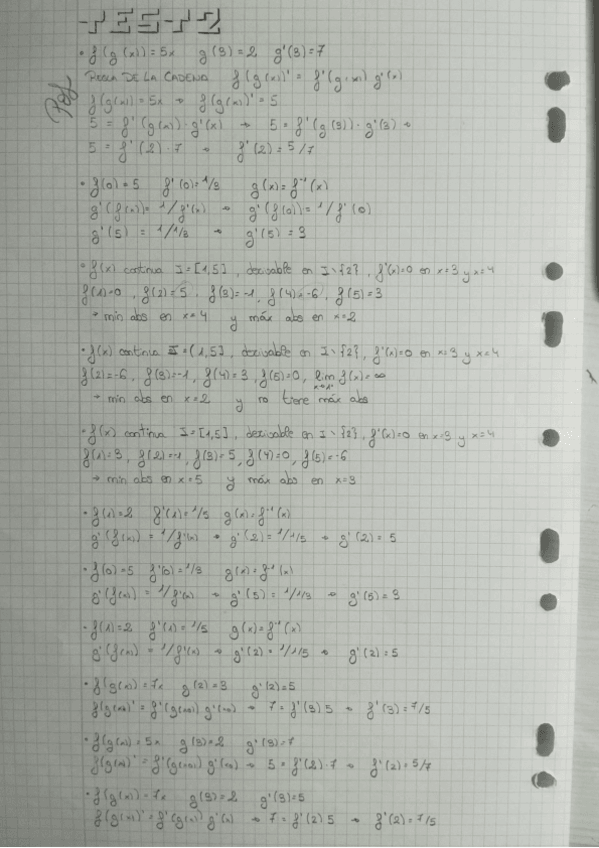 TEST 2
• f(g(x))=5x g(3)=2 g'(3)=7
REGLA DE LA CADENA f(g(x))' = f'(g(x)) g'(x)
f(g(x))=5x → f(g(x))'=5
5 = f'(g(x))·g'(x) → 5 = f'(g(3))·g'(3) →
5 = f'(2)·7 → f'(2)=5/7
• f(0)=5 f'(0)=1/3 g(x)=f⁻¹(x)
g'(f(x))=1/f'(x) → g'(f(0))=1/f'(0)
g'(5) = 1/1/3 → g'(5)=3
• f(x) continua I=[1,5], derivable en I\{2}, f'(x)=0 en x=3 y x=4
f(1)=0, f(2)=5, f(3)=-1, f(4)=-6, f(5)=3
→ min abs en x=4 y máx abs en x=2
• f(x) continua I=(1,5], derivable en I\{2}, f'(x)=0 en x=3 y x=4
f(2)=-6, f(3)=-1, f(4)=3, f(5)=0, lim x→1⁺ f(x)=∞
→ min abs en x=2 y no tiene máx abs
• f(x) continua I=[1,5], derivable en I\{2}, f'(x)=0 en x=3 y x=4
f(1)=3, f(2)=-1, f(3)=5, f(4)=0, f(5)=-6
→ min abs en x=5 y máx abs en x=3
• f(1)=2 f'(1)=1/5 g(x)=f⁻¹(x)
g'(f(x))=1/f'(x) → g'(2)=1/1/5 → g'(2)=5
• f(0)=5 f'(0)=1/3 g(x)=f⁻¹(x)
g'(f(x))=1/f'(x) → g'(5)=1/1/3 → g'(5)=3
• f(1)=2 f'(1)=1/5 g(x)=f⁻¹(x)
g'(f(x))=1/f'(x) → g'(2)=1/1/5 → g'(2)=5
• f(g(x))=7x g(2)=3 g'(2)=5
f(g(x))'=f'(g(x)) g'(x) → 7=f'(3) 5 → f'(3)=7/5
• f(g(x))=5x g(3)=2 g'(3)=7
f(g(x))'=f'(g(x)) g'(x) → 5=f'(2)·7 → f'(2)=5/7
• f(g(x))=7x g(3)=2 g'(3)=5
f(g(x))'=f'(g(x)) g'(x) → 7=f'(2) 5 → f'(2)=7/5